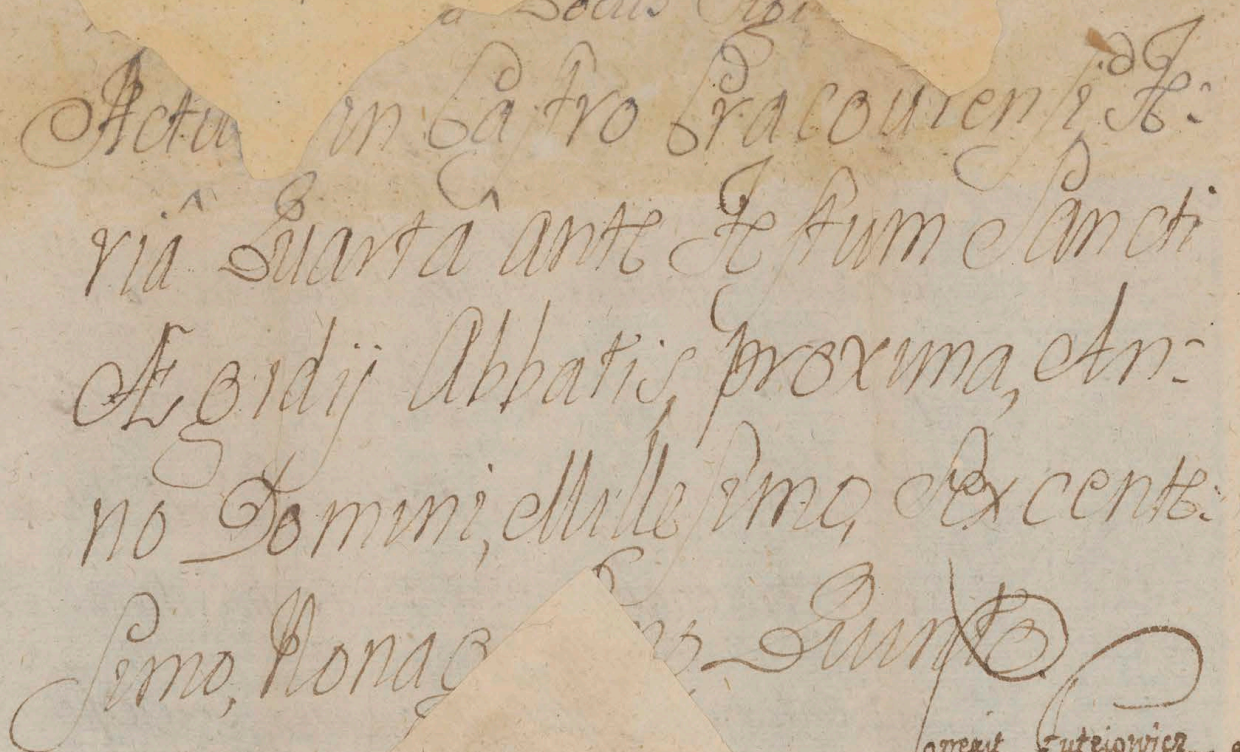 Locus Sigi
Actu in Castro Cracouiensi Fe:
riâ Quartâ ante Festum Sancti
Ægidij Abbatis, proxima, An:
no Domini, Millesimo, Sexcente:
simo, Nonag mo Quinto